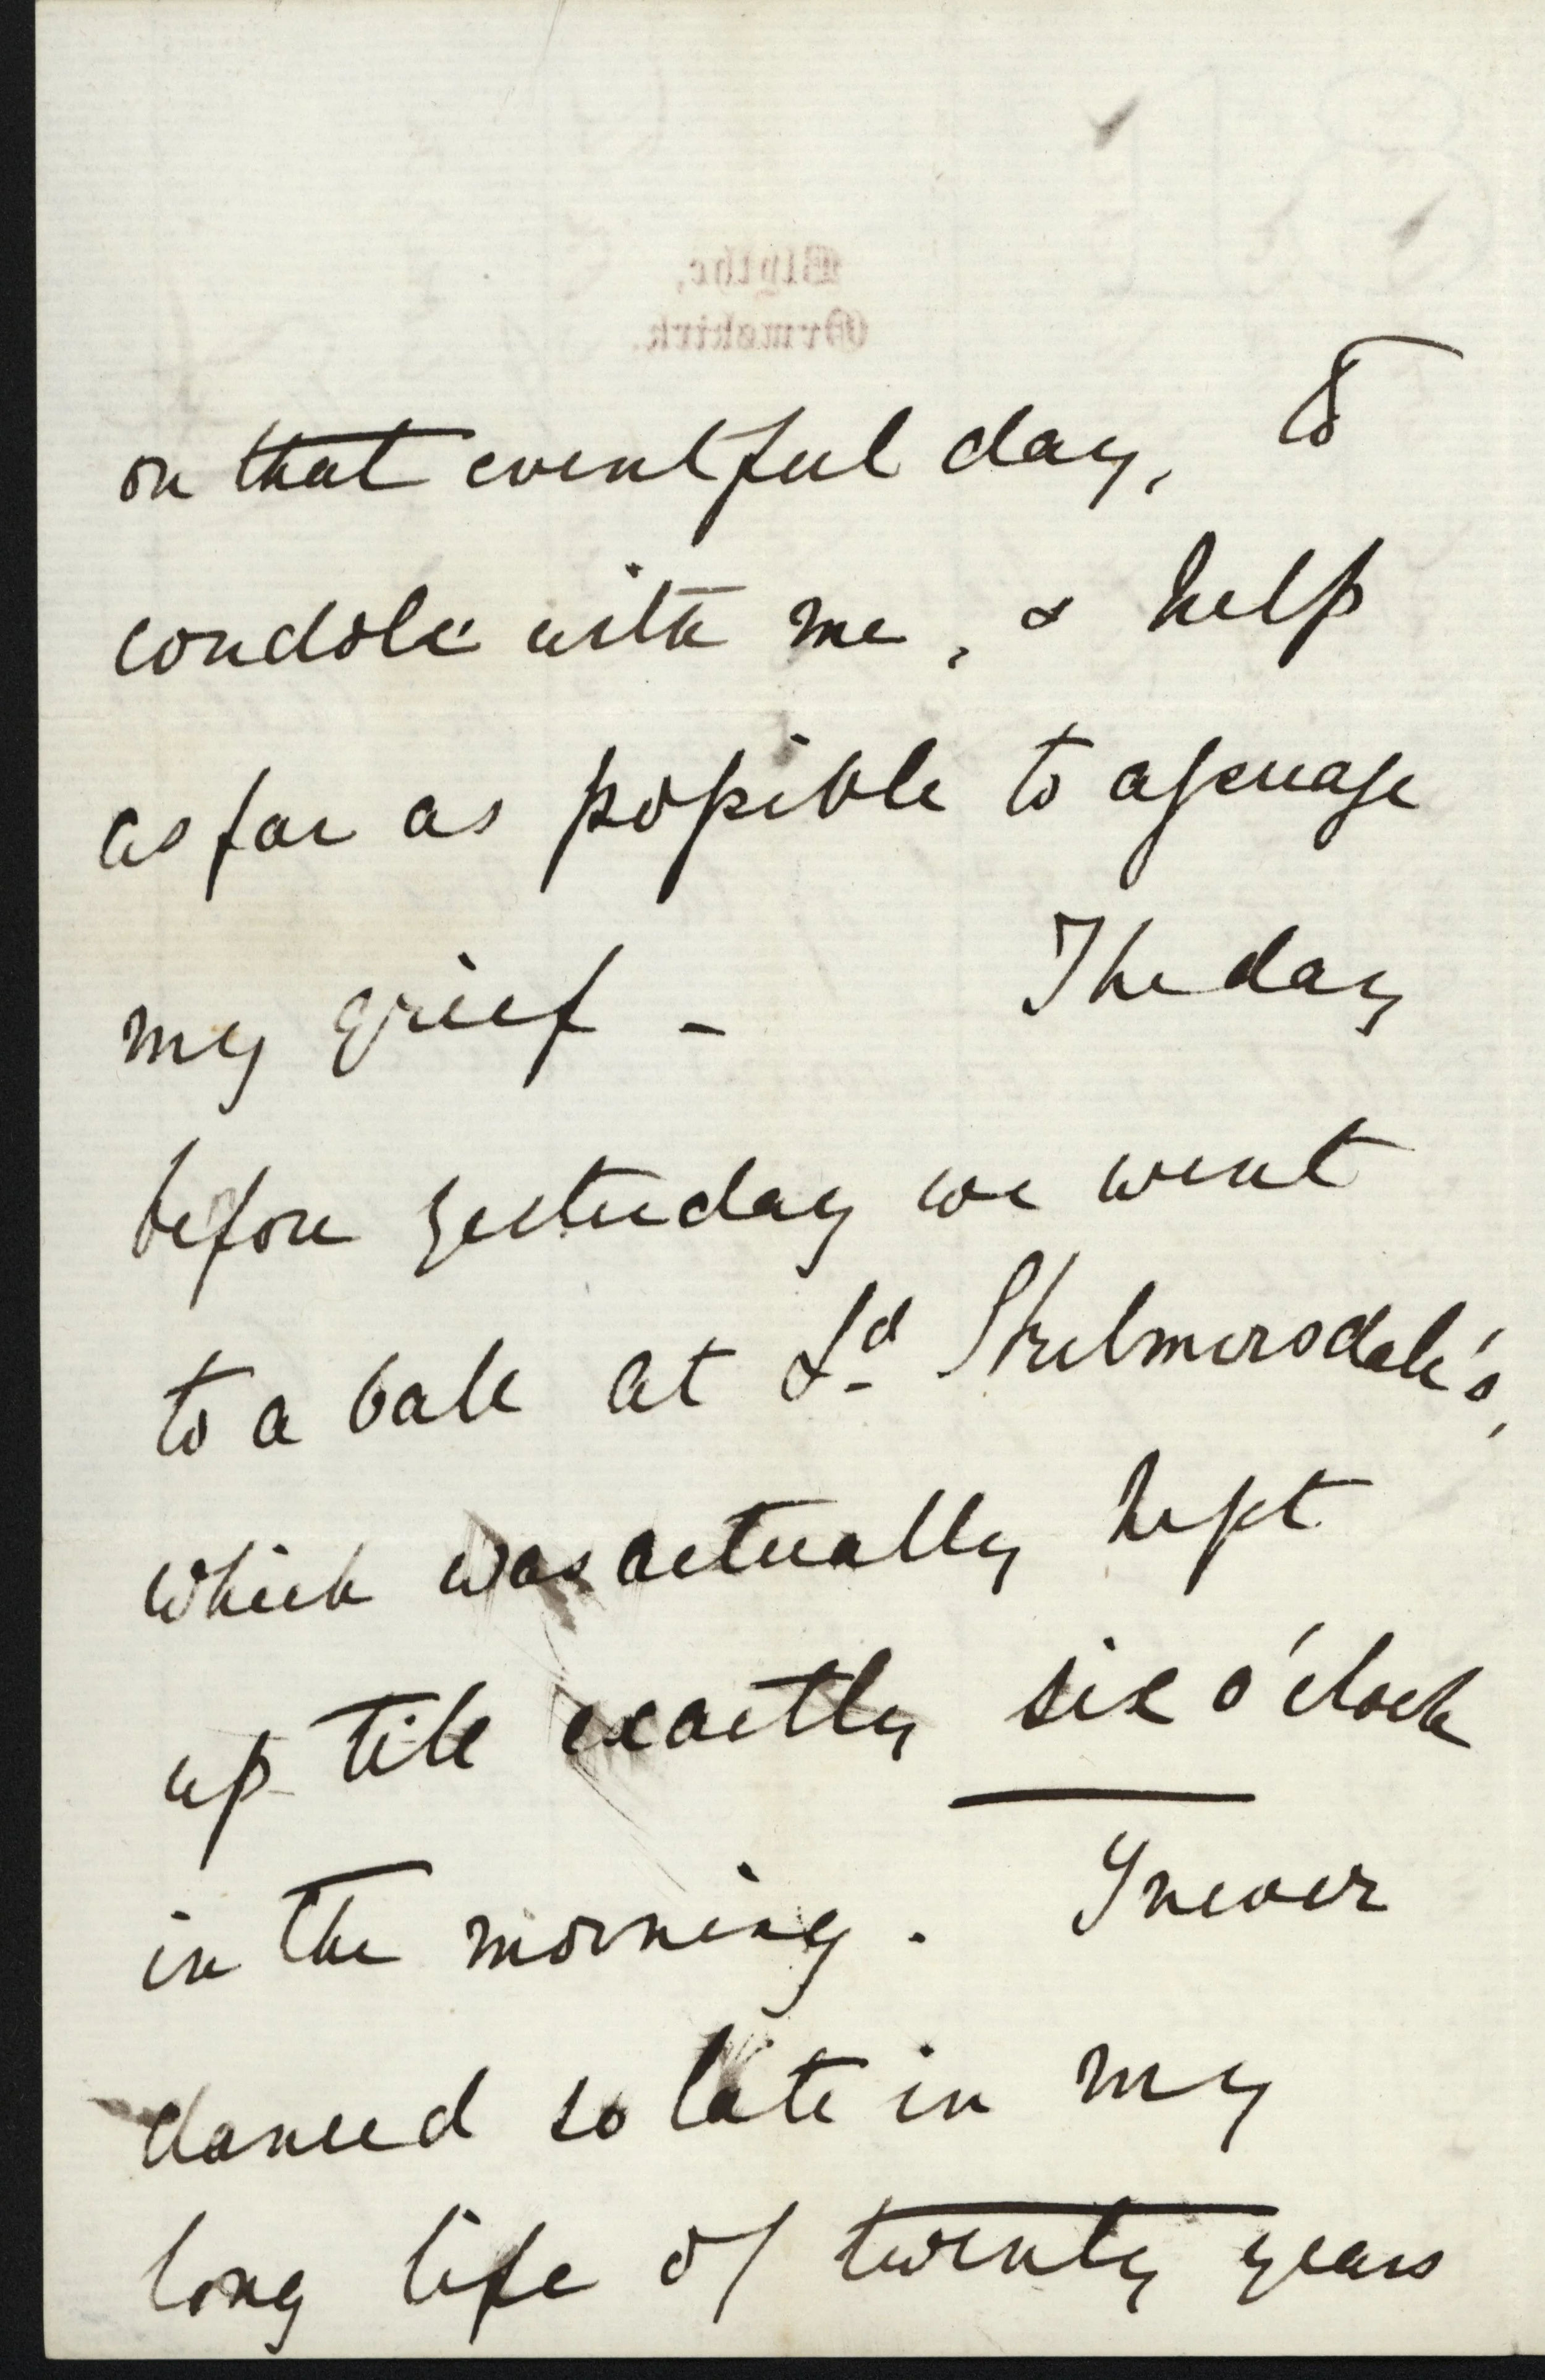 Blythe,
Ormskirk.
on that eventful day, to
condole with me, & help
as far as possible to assuage
my grief - The day
before yesterday we went
to a ball at Ld Skelmersdale's,
which was actually kept
up till exactly six o'clock
in the morning. I never
danced so late in my
long life of twenty years